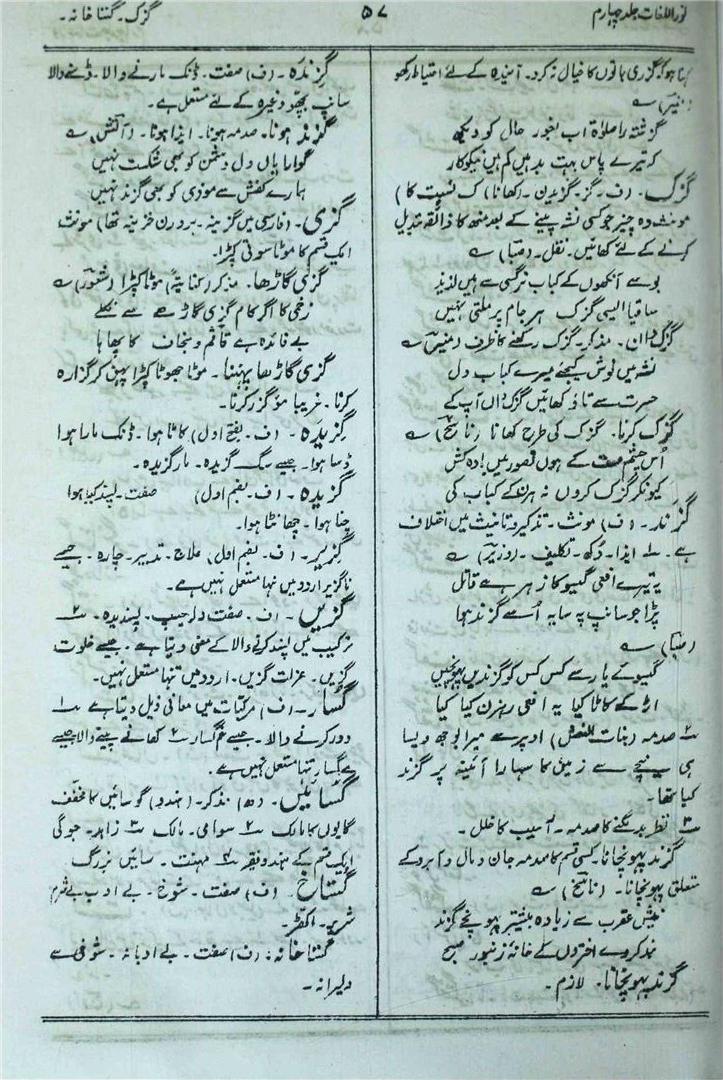 نور اللغات جلد چہارم
۵۷
گزک۔ گستاخانہ۔
کہنا ہوگا۔ گزری باتوں کا خیال نہ کرو۔ آئندہ کے لئے احتیاط رکھو
(منیرؔ) ؎
گزشتہ را صلوٰۃ اب بغور حال کو دیکھ
کہ تیرے پاس بہت بد ہیں کم ہیں نیکو کار
گزک۔ (ف۔ گز۔ گزیدن۔ (کھانا) ک نسبت کا)
مونث وہ چیز جو کسی نشہ پینے کے بعد منھ کا ذائقہ تبدیل
کرنے کے لئے کھائیں۔ نقل۔ (صبا) ؎
بوسے آنکھوں کے کباب نرگسی سے ہیں لذیذ
ساقیا ایسی گزک ہر جام پر ملتی نہیں
گزک دان۔ مذکر۔ گزک رکھنے کا ظرف (منیرؔ) ؎
نشہ میں نوش کیجئے میرے کباب دل
حسرت سے تاؤ کھائیں گزک داں آپ کے
گزک کرنا۔ گزک کی طرح کھانا (ناسخؔ) ؎
اُس چشم مست کے ہوں تصور میں بادہ کش
کیونکر گزک کروں نہ ہرن کے کباب کی
گزند۔ (ف) مونث۔ تذکیر و تانیث میں اختلاف
ہے۔ ۱؎ ایذا۔ دُکھ۔ تکلیف۔ (وزیرؔ) ؎
یہ تیرے افعی گیسو کا زہر ہے قاتل
پڑا جو سانپ پہ سایہ اُسے گزند ہوا
(صبا) ؎
گیسوئے یار سے کس کس کو گزندیں پہونچیں
اڑ کے کاٹا کیا یہ افعی رہزن کیا کیا
۲؎ صدمہ (بنات النعش) اوپر سے میرا بوجھ ویسا
ہی نیچے سے زمین کا سہارا آئینہ پر گزند
کیا تھا۔
۳؎ نظر بد لگنے کا صدمہ۔ آسیب کا خلل۔
گزند پہونچانا۔ کسی قسم کا صدمہ جان و مال و آبرو کے
متعلق پہونچانا۔ (ناسخ) ؎
نیش عقرب سے زیادہ بیشتر پہونچے گزند
بند کر دے اختروں کے خانۂ زنبور صبح
گزند پہونچانا۔ لازم۔
گزندہ۔ (ف) صفت۔ ڈنک مارنے والا۔ ڈسنے والا
سانپ بچھو وغیرہ کے لئے مستعمل ہے۔
گزند ہونا۔ صدمہ ہونا۔ ایذا ہونا۔ (آتش) ؎
گوارا یاں دل دشمن کو بھی شکست نہیں
ہمارے کفش سے موذی کو بھی گزند نہیں
گزی۔ (فارسی میں گزینہ۔ بروزن خزینہ تھا) مونث
ایک قسم کا موٹا سوتی کپڑا۔
گزی گاڑھا۔ مذکر (کنایۃً) موٹا کپڑا (شعورؔ) ؎
زخمی کا اگر کام گزی گاڑھے سے نکلے
بے فائدہ ہے قاقم و سنجاب کا پھاہا
گزی گاڑھا پہننا۔ موٹا جھوٹا کپڑا پہن کر گزارہ
کرنا۔ غریبا مؤ گزر کرنا۔
گزیدہ۔ (ف۔ بفتح اول) کاٹا ہوا۔ ڈنک مارا ہوا
ڈسا ہوا۔ جیسے سگ گزیدہ۔ مار گزیدہ۔
گزیدہ۔ (ف۔ بضم اول) صفت۔ پسند کیا ہوا
چنا ہوا۔ چھانٹا ہوا۔
گزیر۔ (ف۔ بضم اول) علاج۔ تدبیر۔ چارہ۔ جیسے
ناگزیر اردو میں تنہا مستعمل نہیں ہے۔
گزیں۔ (ف۔ صفت دلچسپ۔ پسندیدہ۔ ۲؎
ترکیب میں پسند کرنے والا کے معنی دیتا ہے۔ جیسے خلوت
گزیں۔ عزلت گزیں۔ اردو میں تنہا مستعمل نہیں۔
گسار۔ (ف) مرکبات میں معانی ذیل دیتا ہے ۱؎
دور کرنے والا۔ جیسے غمگسار ۲؎ کھانے پینے والا جیسے
میگسار تنہا مستعمل نہیں ہے۔
گسائیں۔ (ھ) مذکر۔ (ہندو) گوسائیں کا مخفف
گایوں کا مالک ۲؎ سوامی۔ مالک ۳؎ زاہد۔ جوگی
ایک قسم کے ہندو فقیر ۴؎ مہنت۔ سائیں بزرگ
گستاخ۔ (ف) صفت۔ شوخ۔ بے ادب بے شرم
شریر۔ اکھڑ۔
گستاخانہ: (ف) صفت۔ بے ادبانہ۔ شوخی سے
دلیرانہ۔